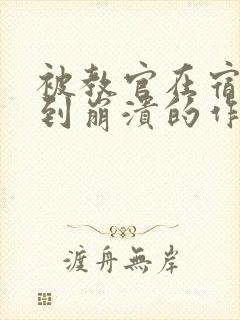 被教官在宿
到崩溃的作
渡舟無岸